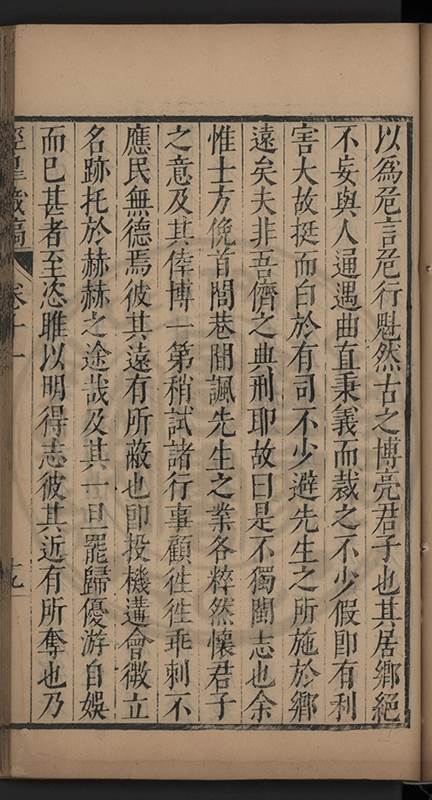 以為危言危行魁然古之博亮君子也其居鄉絕
不妄與人通遇曲直秉義而裁之不少假即有利
害大故挺而白於有司不少避先生之所施於鄉
遠矣夫非吾儕之典刑耶故曰是不獨閩志也余
惟士方俛首閭巷間諷先生之業各粹然懷君子
之意及其倖博一第稍試諸行事顧徃徃乖刺不
應民無德焉彼其遠有所蔽也即投機遘會徼立
名跡托於赫赫之途哉及其一旦罷歸優游自娛
而已甚者至恣睢以明得志彼其近有所奪也乃
經皐藏稿 卷十一 十九